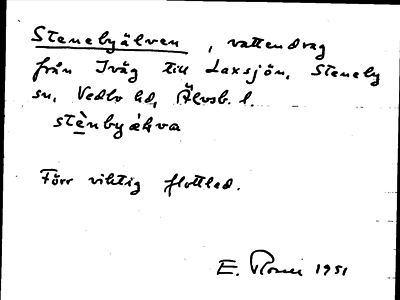 Stenebyälven, vattendrag
från Iväg till Laxsjön, Steneby
sn, Vedbo hd, Älvsb. l.
stènbyä́lva
Förr viktig flottled.
E. 1951